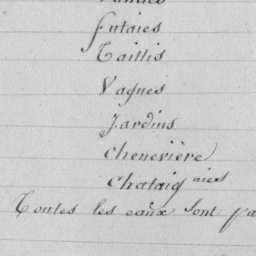 Futaies
Taillis
Vagnes
Jardins
Chenevière
Chataigniers
Toutes les eaux sont